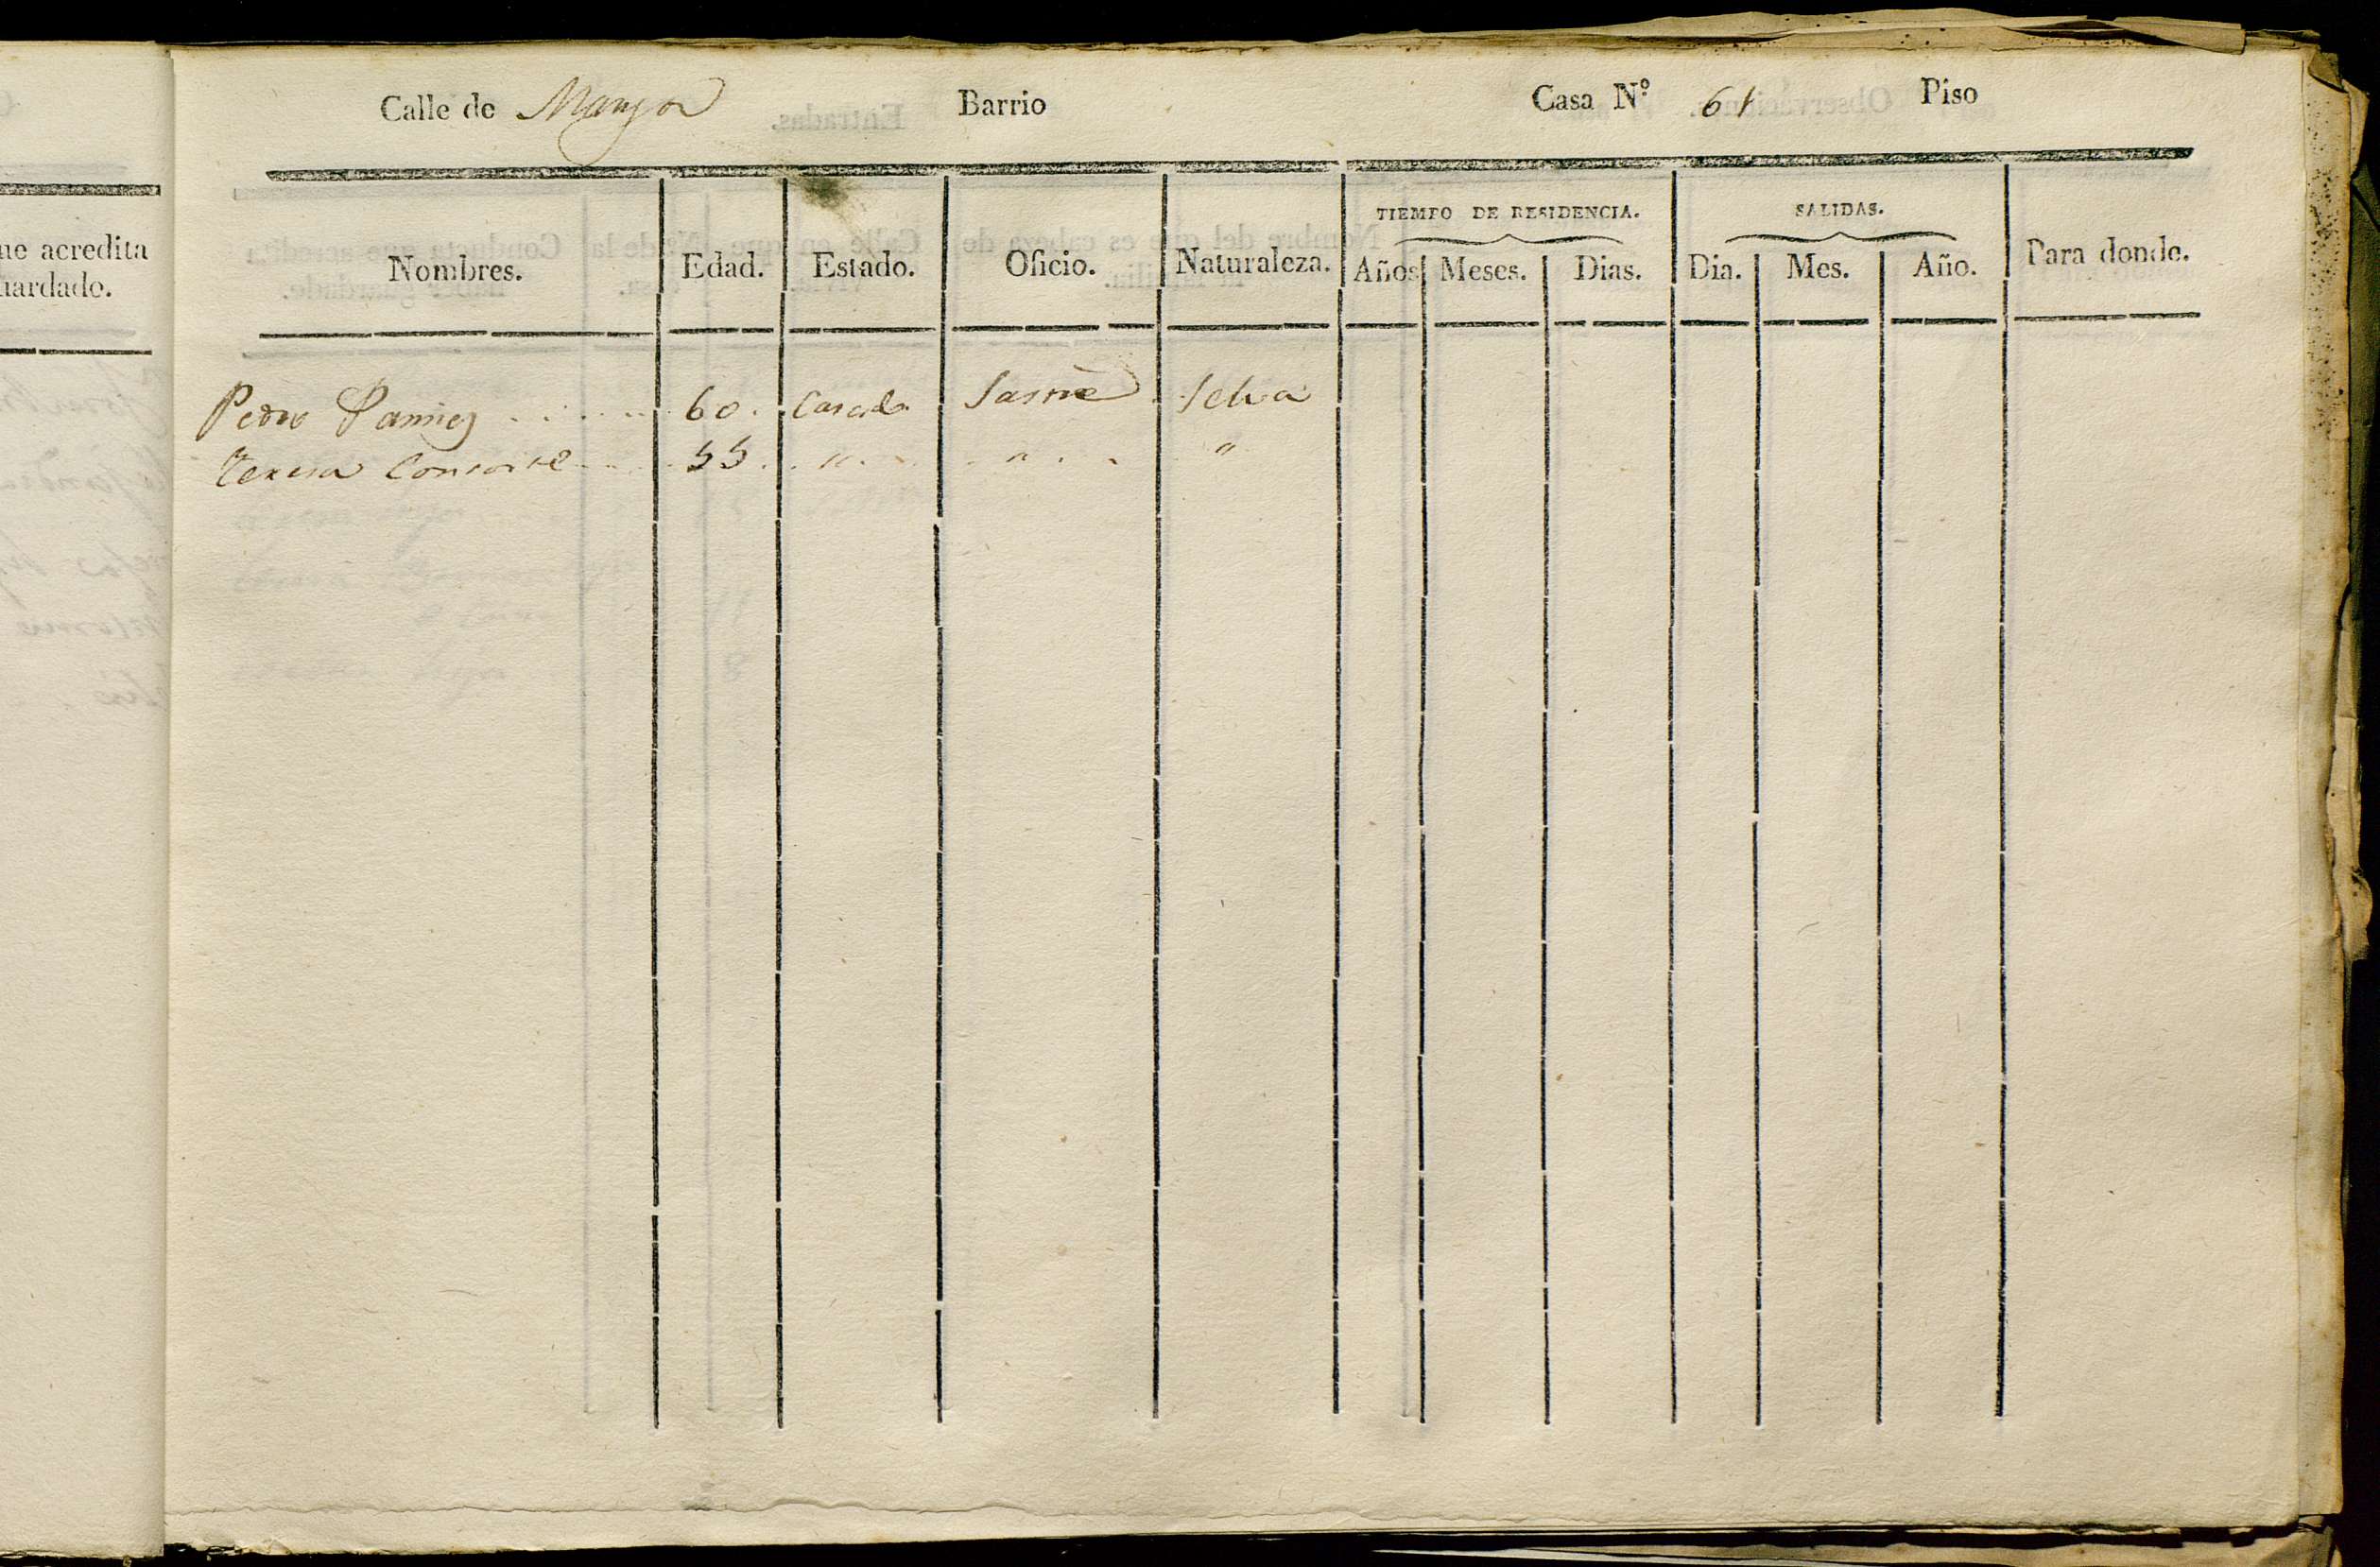 ue acredita
uardado.
Calle de Mayor Barrio Casa N.º 61 Piso
TIEMPO DE RESIDENCIA. SALIDAS.
Nombres. Edad. Estado. Oficio. Naturaleza. Años Meses. Dias. Dia. Mes. Año. Para donde.
Pedro Pamies 60. Casado Sastre Selva
Teresa Consorte 55 " " "